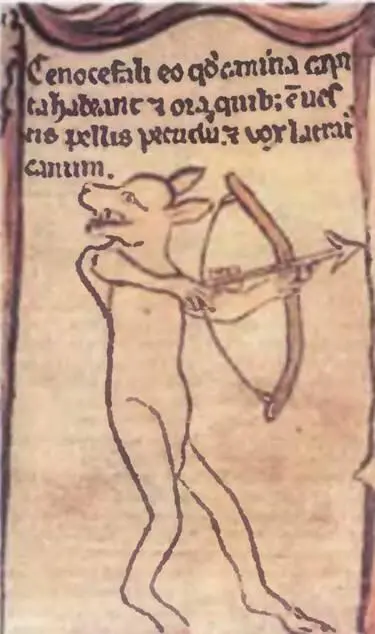 Cenocefali eo qđ camina capi
ta habeant ⁊ ora, quib; ē ues
tis pellis pecudū. ⁊ vox latrat
canum.